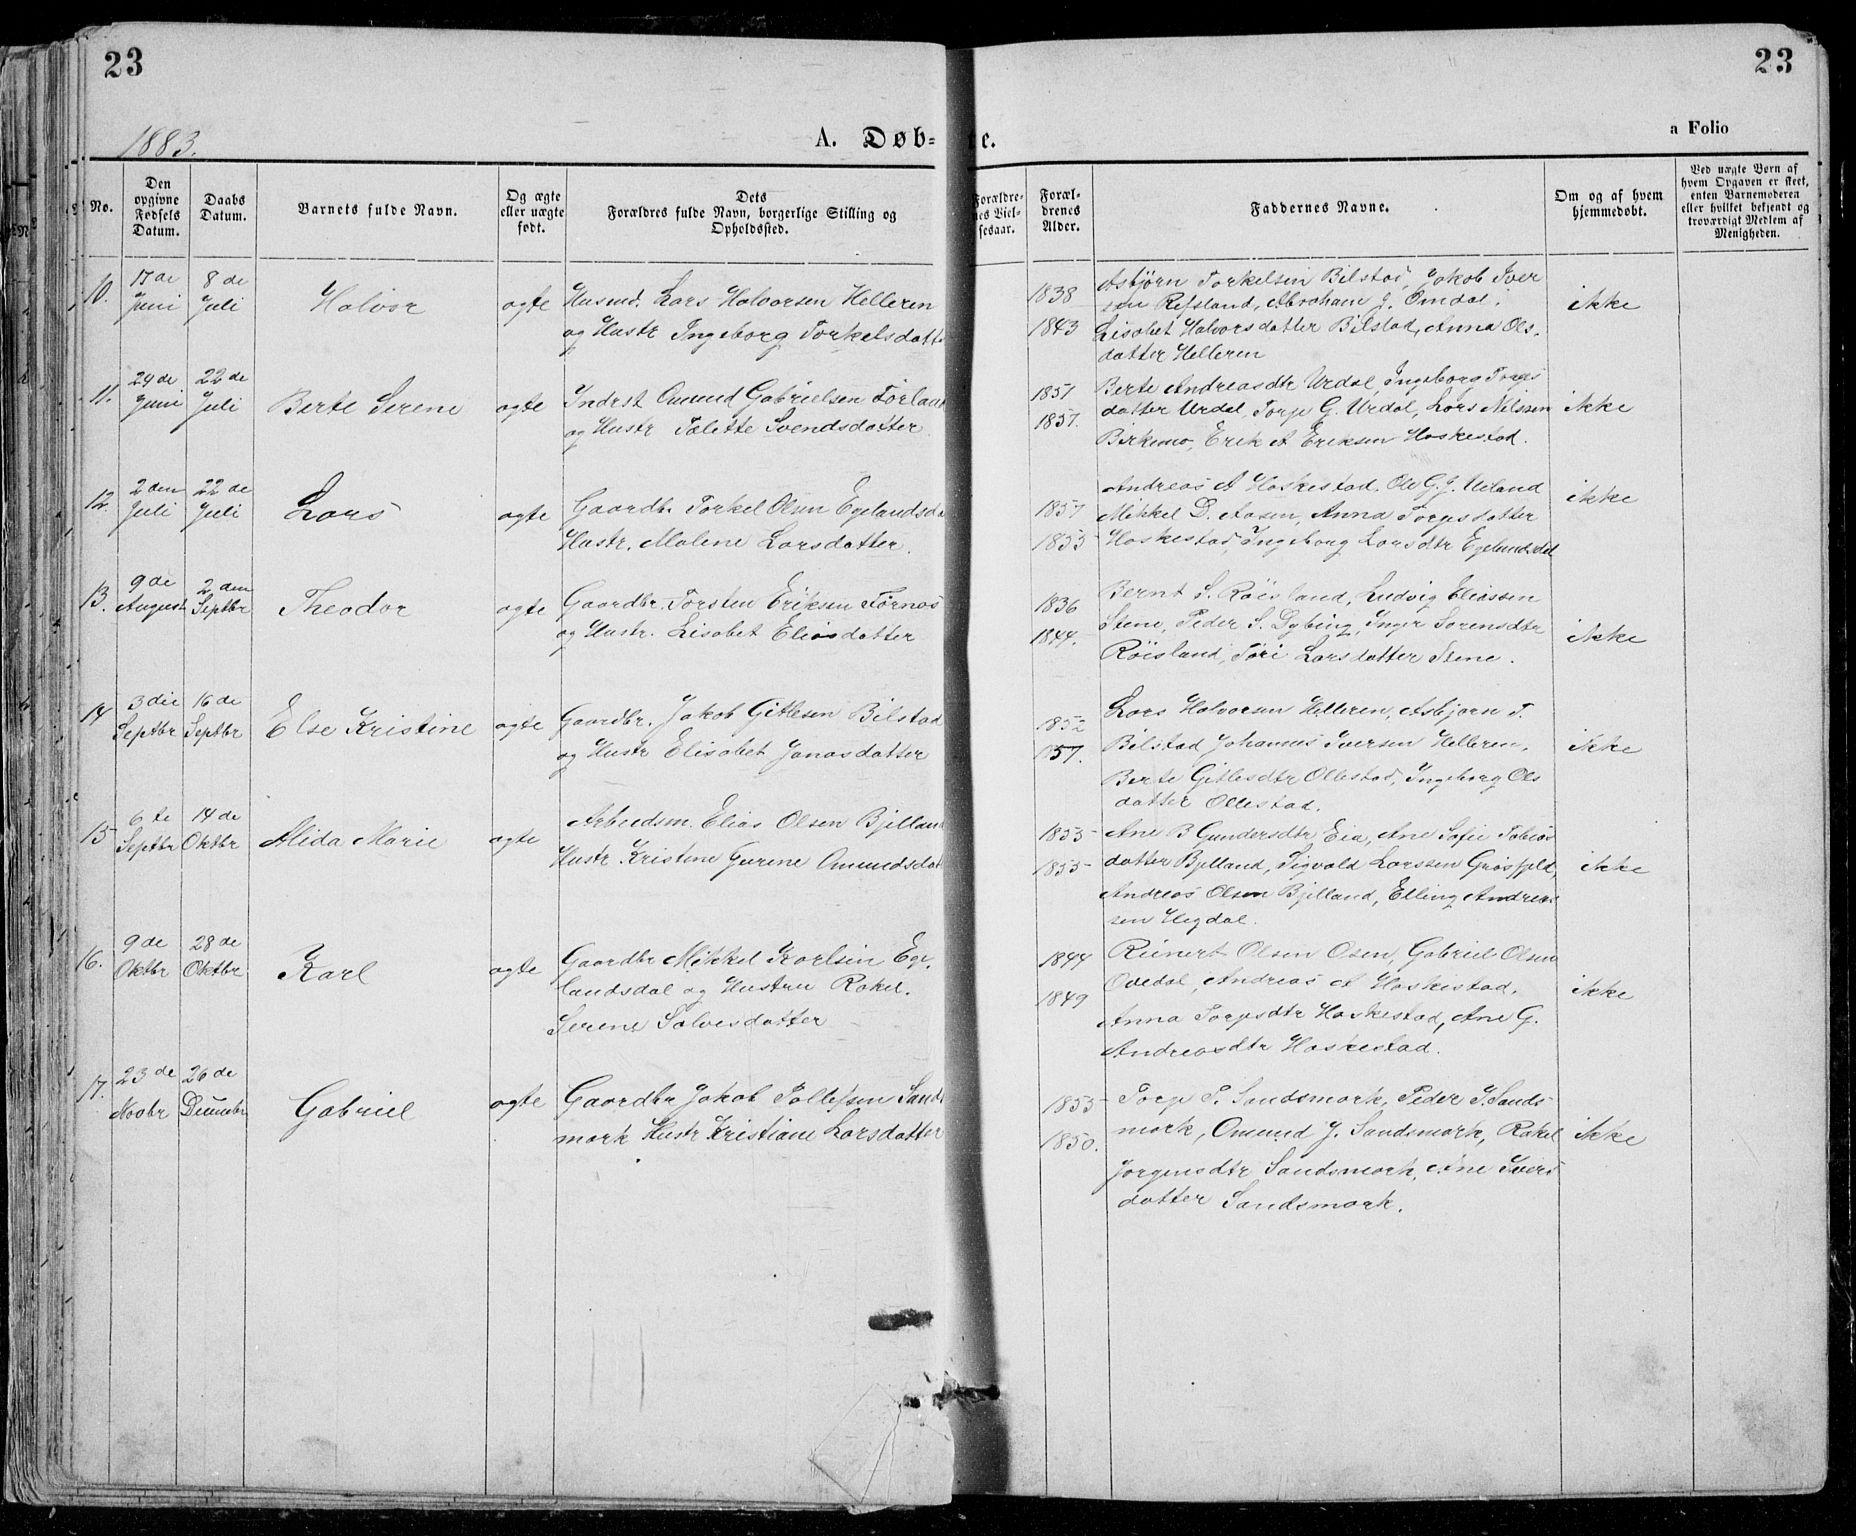 23
23
1883.
A. Døb- te.
a Folio
No.
Den opgivne Fødsels Datum.
Daabs Datum.
Barnets fulde Navn.
Og ægte eller uægte født.
Dets Forældres fulde Navn, borgerlige Stilling og Opholdssted.
Forældrenes Vielsesaar.
Forældrenes Alder.
Faddernes Navne.
Om og af hvem hjemmedøbt.
Ved uægte Børn af hvem Opgaven er skeet, enten Barnemoderen eller hvilket bekjendt og troværdigt Medlem af Menigheden.
10. 17de Juni 8de Juli Halvor ægte Husmd. Lars Halvorsen Helleren
og Hustr Ingeborg Torkelsdatt
1838
1843
Asbjørn Torkelsen Bilstad, Jakob Iver
sen Refsland, Abraham J. Omdal.
Lisabet Halvorsdatter Bilstad, Anna Ols-
datter Helleren
ikke
11. 29de Juni 22de Juli Berte Serene ægte Inderst Omund GabrielsenFørland
og Hustr Talette Svendsdatter
1851
1857.
Berte Andreasdtr Urdal, Ingeborg Torges
datter Urdal, Torge G. Urdal, Lars Nilssen
Birkemo, Erik A Eriksen Haskestad.
ikke
12. 2den Juli 22de Juli Lars ægte Gaardbr. Torkel Olsen Egelandsda
Hustr. Malene Larsdatter.
1857
1855
Andreas A Haskestad, Ole G. J. Ueland
Mikkel D. Aasen, Anna Torgesdatter
Haskestad, Ingeborg Larsdtr Egelandsdal
ikke
13. 9de August 2den Septbr Theodor ægte Gaardbr. Torsten Eriksen Tørnos
og Hustr. Lisabet Eliasdatter
1836
1844.
Bernt S. Røisland, Ludvig Eliassen
Stene, Peder S. Dybing, Inger Sørensdtr
Røisland, Tori Larsdatter Stene.
ikke
14 3die Septbr 16de Septbr Else Kristine ægte Gaardbr. Jakob Gitlesen Bilstad
og Hustr Elisabet Jonasdatter
1852
1857.
Lars Halvorsen Helleren, Asbjørn T.
Bilstad Johannes Iversen Helleren.
Berte Gitlesdtr Ollestad, Ingeborg Ols
datter Ollestad.
ikke
15 6te Septbr 14de Oktbr Alida Marie ægte Arbeidsm. Elias Olsen Bjelland
Hustr Kristine Gurine Omundsdat
1855
1855
Ane B Gundersdtr Eia, Ane Sofie Tobias
datter Bjelland, Sigvald Larssen Grøsfjeld,
Andreas Olsen Bjelland, Elling Andreas
sen Hegdal.
ikke
16. 9de Oktbr 28de Oktbr Karl ægte Gaardbr Mikkel Karlsen Ege
landsdal og Hustru Rakel
Serene Salvesdatter
1844
1849
Reinert Olsen Osen, Gabriel Olsen
Ovedal, Andreas A Haskestad.
Anna Torgesdtr Haskestad, Ane G.
Andreasdtr Haskestad.
ikke
17. 23de Novbr 26de Decembr Gabriel ægte Gaardbr Jakob Tollefsen Sands
mark Hustr Kristiane Larsdatter
1855
1850.
Torge T. Sandsmark, Peder J. Sands-
mark, Omund J. Sandsmark, Rakel
Jørgensdtr Sandsmark, Ane Ivers
datter Sandsmark.
ikke